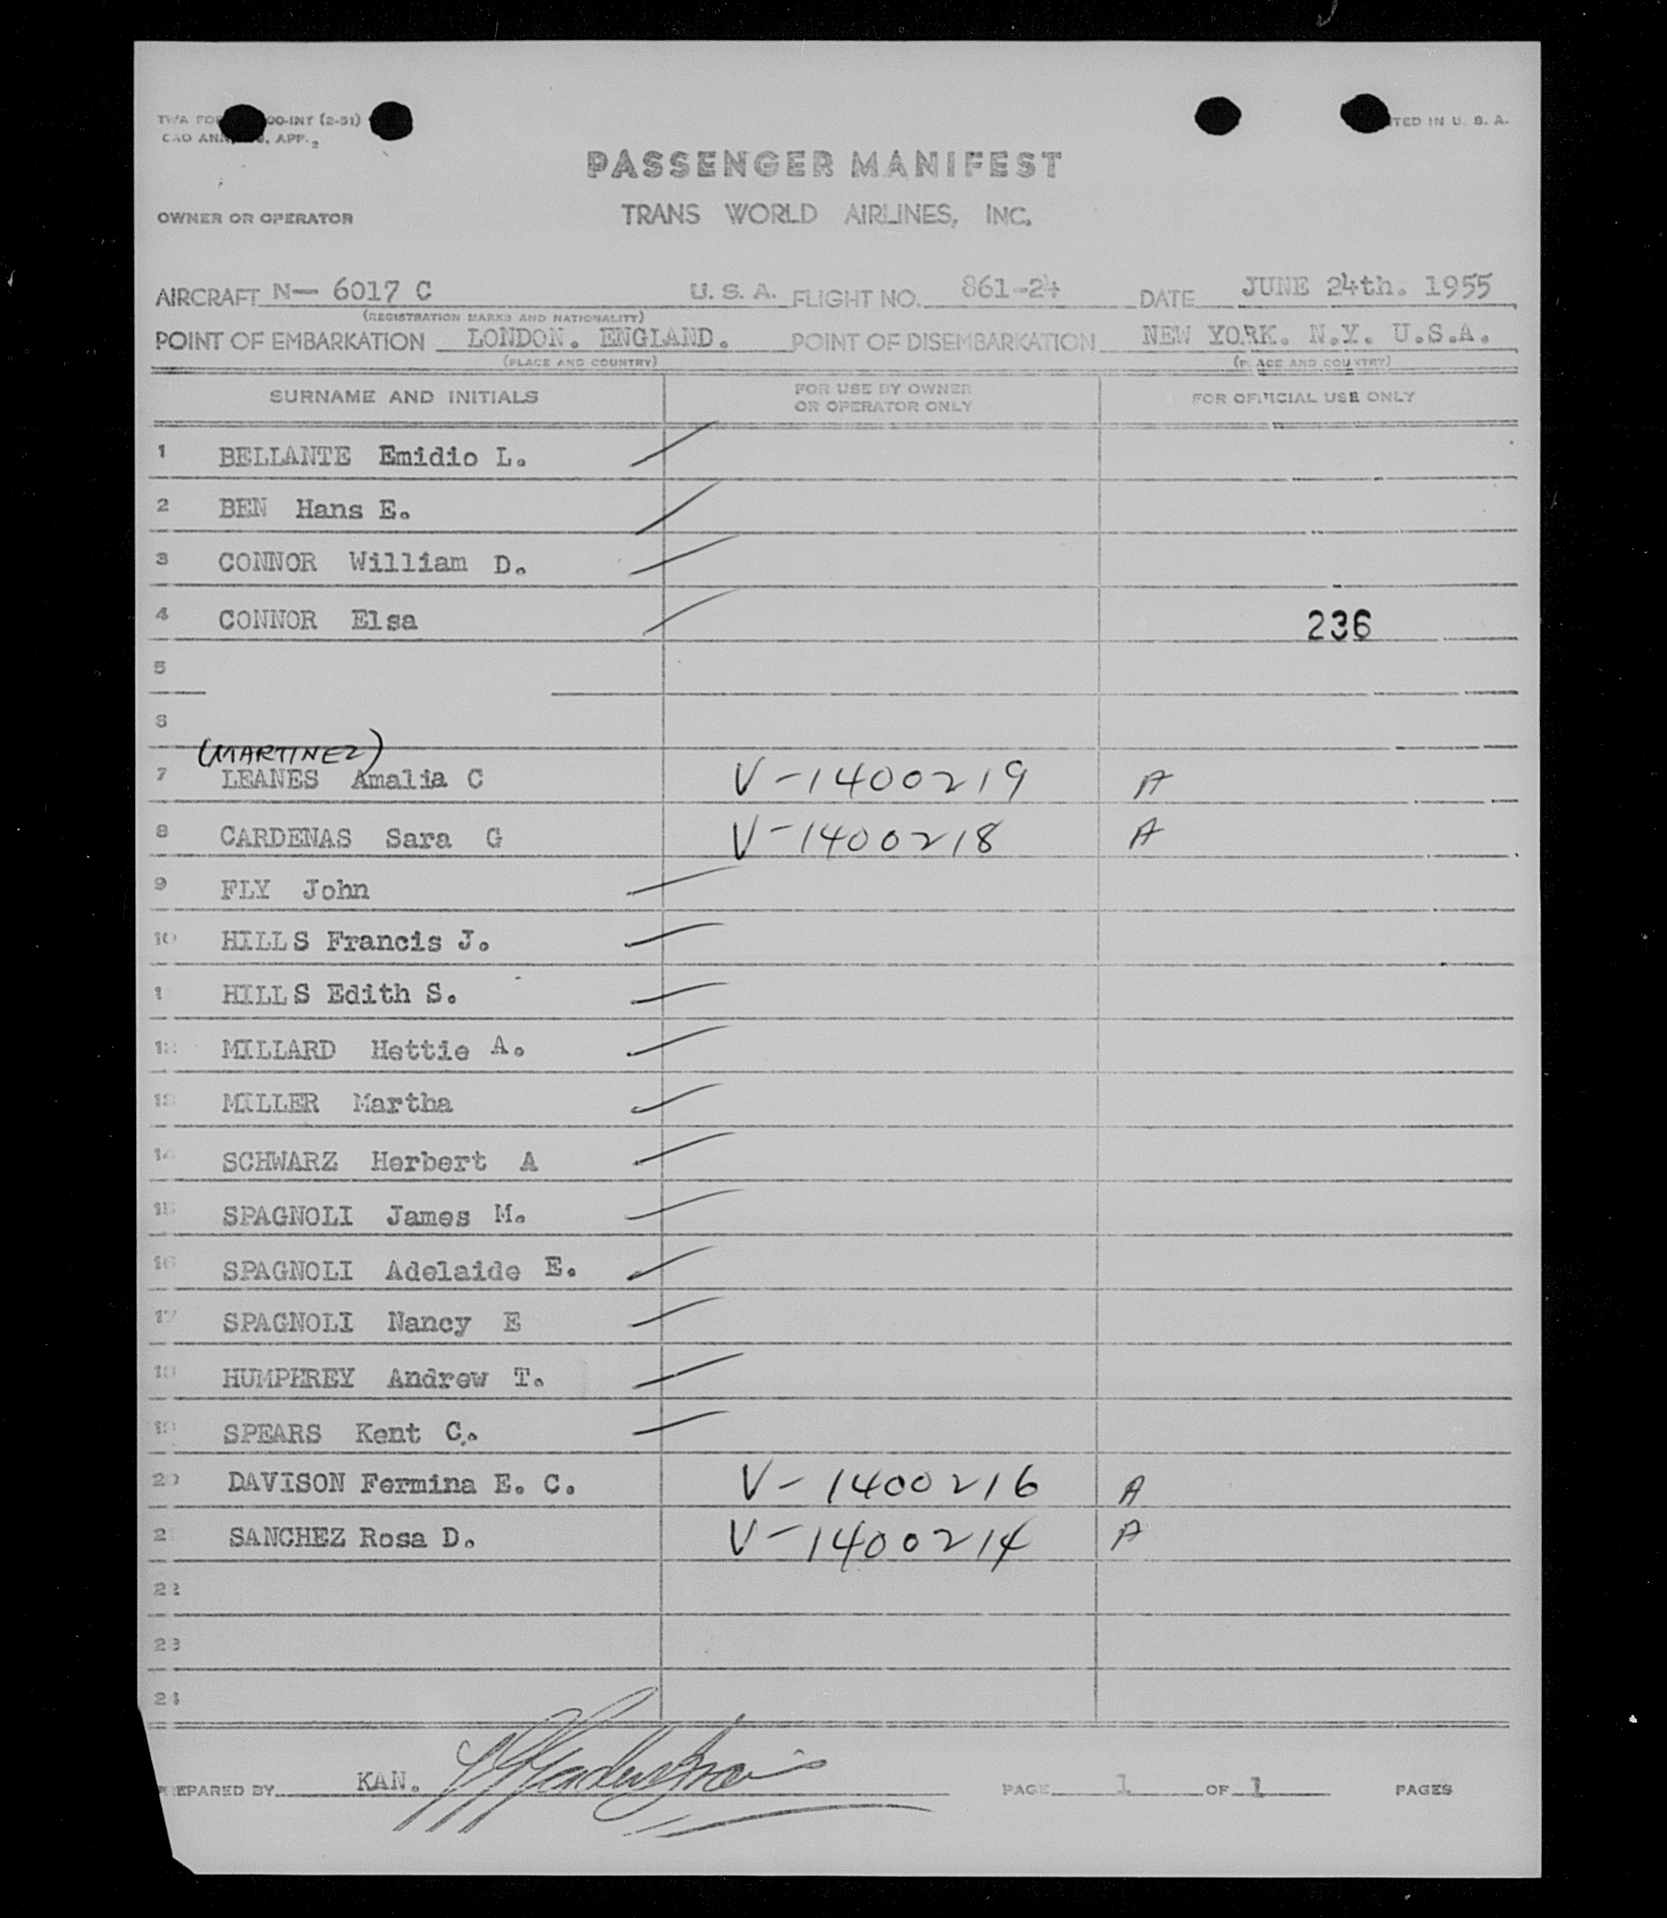 TWA FO 00-INT (2-51)
CAO ANN APP. 2
TED IN U. S. A.
PASSENGER MANIFEST
OWNER OR OPERATOR TRANS WORLD AIRLINES, INC.
AIRCRAFT N— 6017 C U. S. A. FLIGHT NO. 861-24 DATE JUNE 24th. 1955
(REGISTRATION MARKS AND NATIONALITY)
POINT OF EMBARKATION LONDON. ENGLAND. POINT OF DISEMBARKATION NEW YORK. N.Y. U.S.A.
(PLACE AND COUNTRY) (PLACE AND COUNTRY)
SURNAME AND INITIALS FOR USE BY OWNER OR OPERATOR ONLY FOR OFFICIAL USE ONLY
1 BELLANTE Emidio L.
2 BEN Hans E.
3 CONNOR William D.
4 CONNOR Elsa 236
5
6
(MARTINEZ)
7 LEANES Amalia C V-1400219 A
8 CARDENAS Sara G V-1400218 A
9 FLY John
10 HILLS Francis J.
1 HILLS Edith S.
12 MILLARD Hettie A.
13 MILLER Martha
14 SCHWARZ Herbert A
15 SPAGNOLI James M.
16 SPAGNOLI Adelaide E.
17 SPAGNOLI Nancy E
18 HUMPHREY Andrew T.
19 SPEARS Kent C.
20 DAVISON Fermina E. C. V-1400216 A
2 SANCHEZ Rosa D. V-1400214 A
22
23
24
PREPARED BY KAN. PAGE 1 OF 1 PAGES